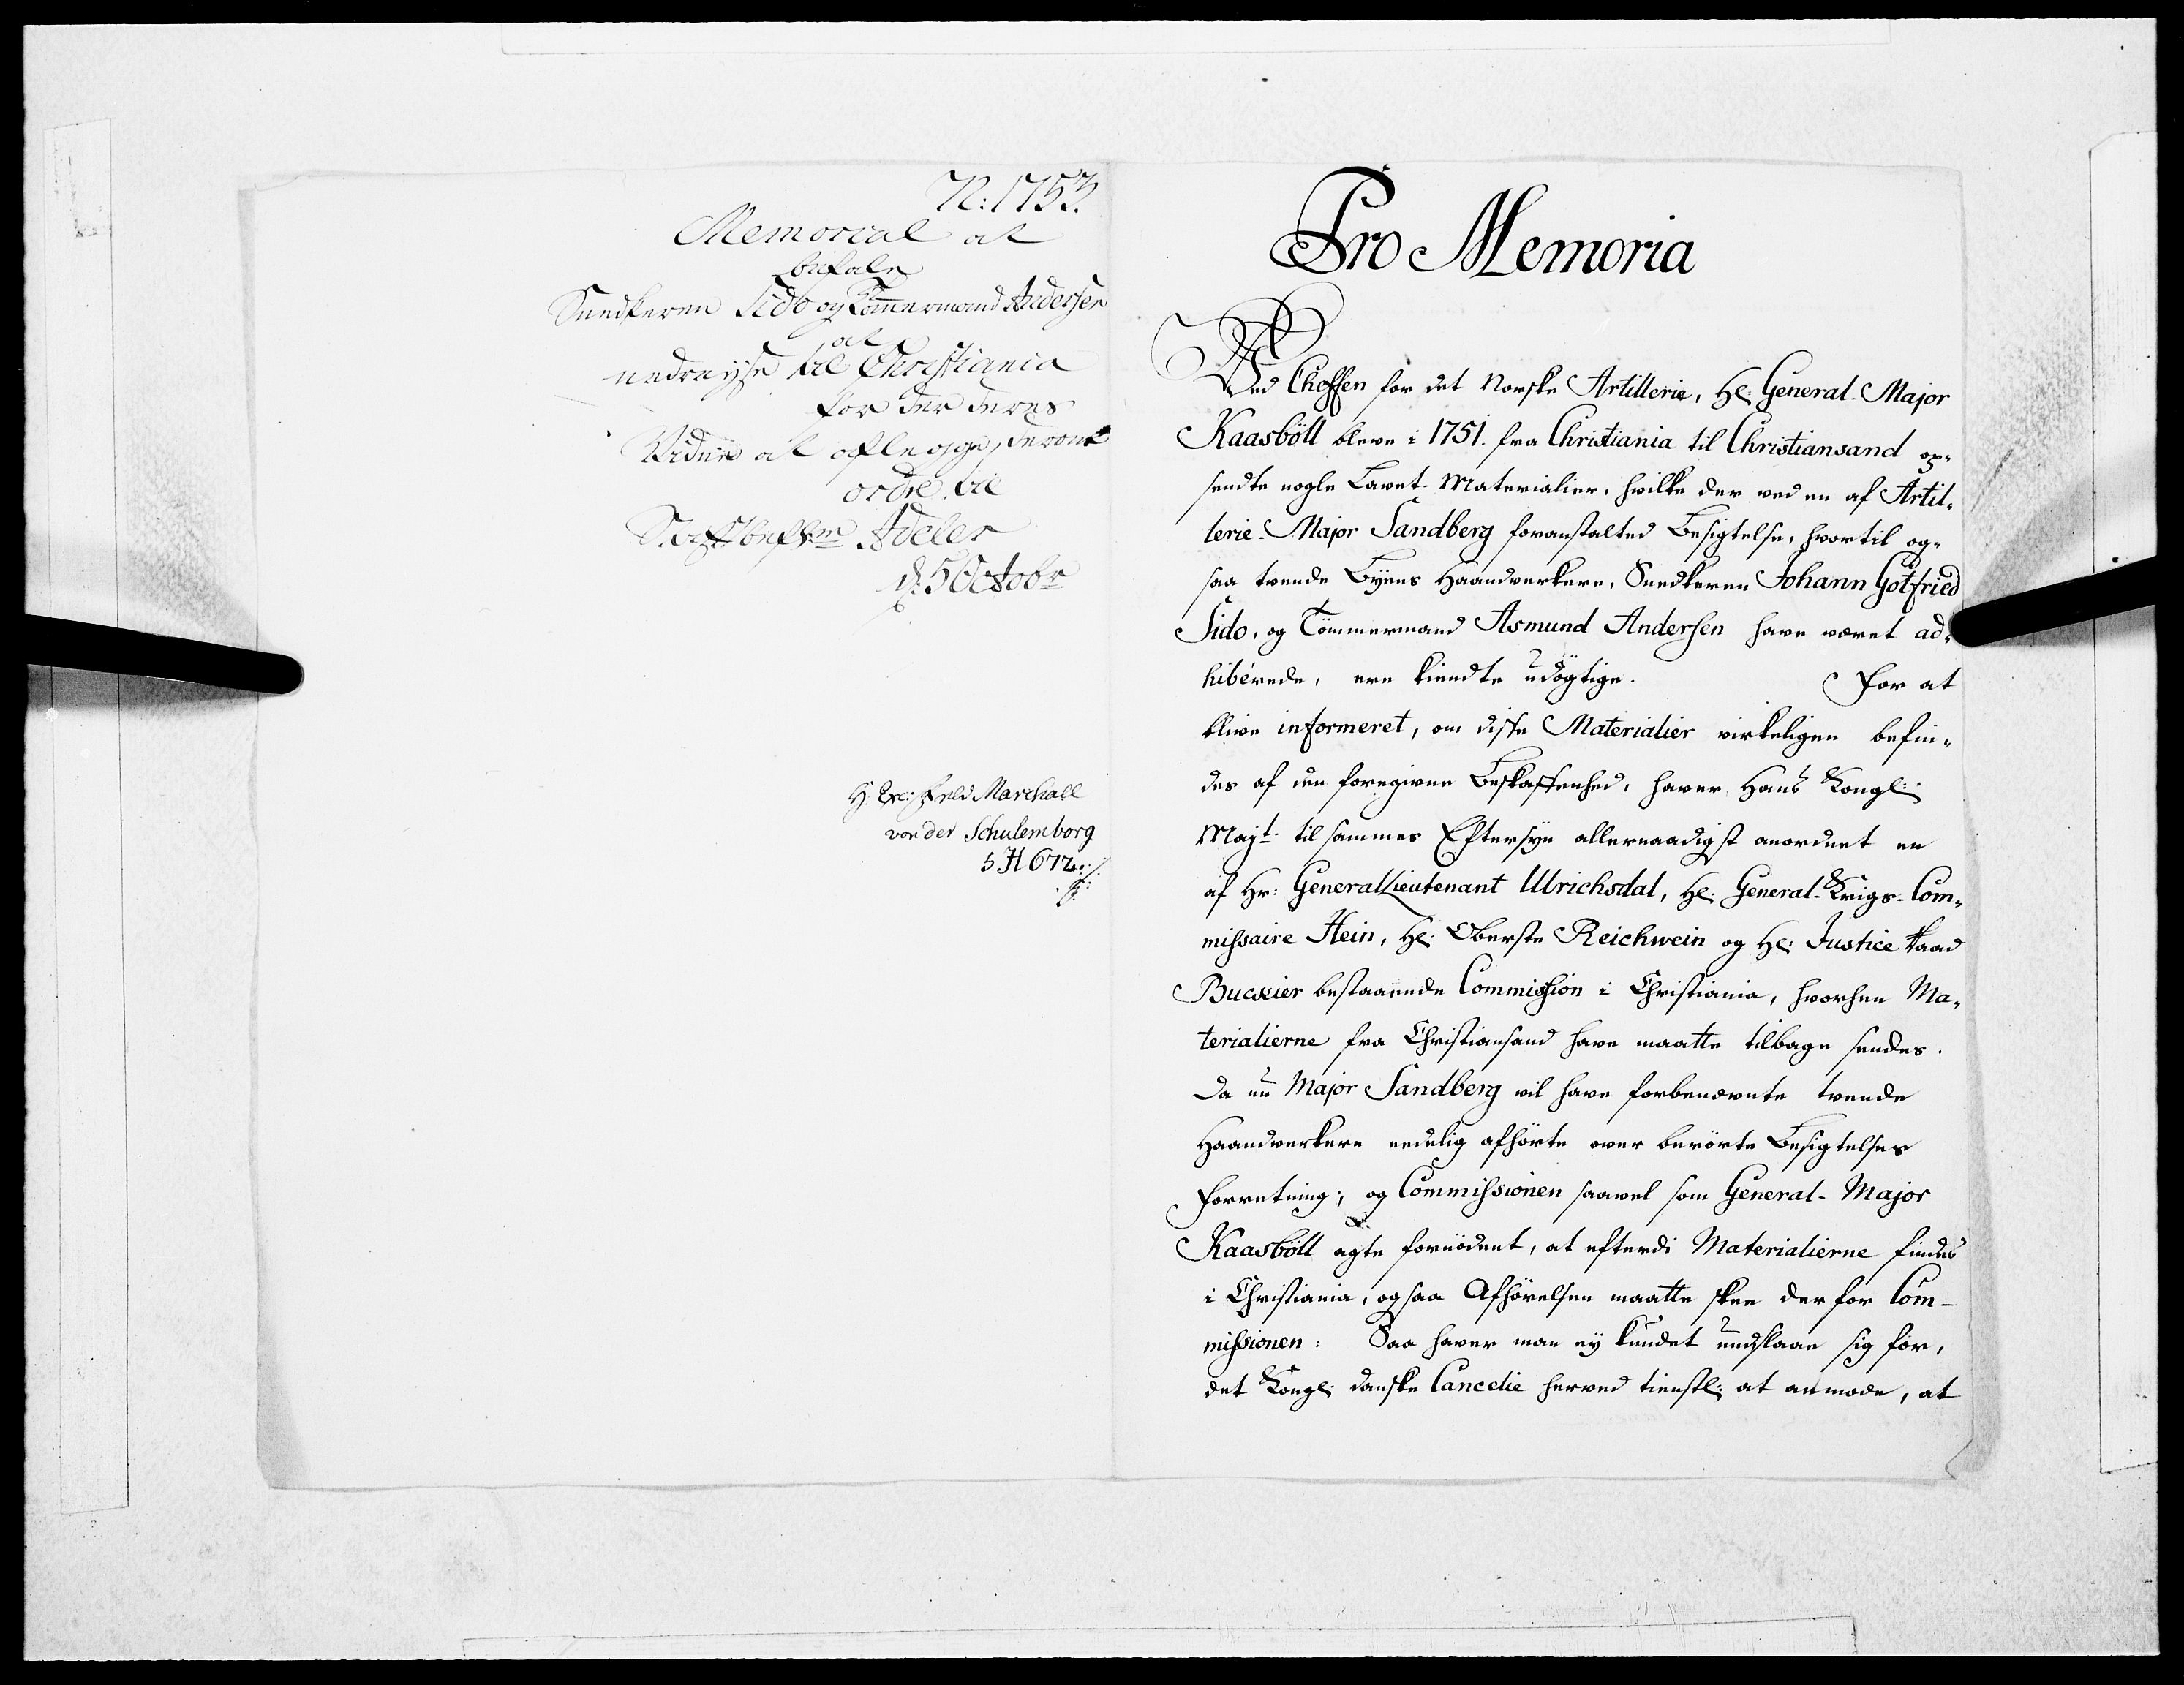 N: 1753.
Memorial at
befale
Snedkeren Sido og Tømmermand Andersen
at
nedreyse til Christiania
for der deres
Vidne at aflegge, derom
ordre til
Stiftbefhm Adeler
d: 5 Octobr
H: Exc: Feld Marchall
von der Schulemborg
5 H 672.
Pro Memoria
Ved Cheffen for det Norske Artillerie, Hr: General-Major
Kaasböll bleve i 1751. fra Christiania til Christiansand op-
sendte nogle Lavet-Materialier, hvilke der ved en af Artil-
lerie-Major Sandberg foranstalted Besigtelse, hvortil og-
saa tvende Byens Haandverkere, Snedkeren Johann Gotfried
Sido, og Tömmermand Asmund Andersen have været ad-
hiberede, ere kiendte udögtige. For at
blive informeret, om disse Materialier virkeligen befin-
des af den foregivne Beskaffenhed, haver Hans Kongl:
Majt. til sammes Eftersyn allernaadigst anordnet en
af Hr: General Lieutenant Ulrichsdal, Hr: General-Krigs-Com-
missaire Hein, Hr: Oberste Reichwein og Hr: Justice Raad
Bucxier bestaaende Commission i Christiania, hvorhen Ma-
terialierne fra Christiansand have maatte tilbage sendes.
Da nu Major Sandberg vil have forbenævnte tvende
Haandverkere eedelig afhörte over berörte Besigtelses
Forretning; og Commissionen saavel som General-Major
Kaasböll agte fornödent, at efterdi Materialierne findes
i Christiania, ogsaa Afhörelsen maatte skee der for Com-
missionen: Saa haver man ey kundet undslaae sig for,
det Kongl: danske Cancelie herved tienstl: at anmode, at